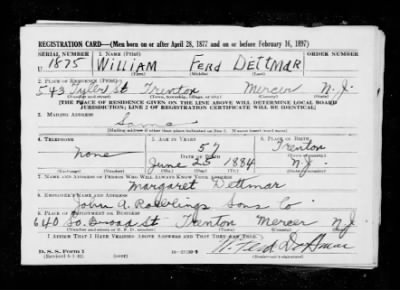 REGISTRATION CARD—(Men born on or after April 28, 1877 and on or before February 16, 1897)
SERIAL NUMBER 1. NAME (Print) ORDER NUMBER
U 1875 WILLIAM FERD DETTMAR
(First) (Middle) (Last)
2. PLACE OF RESIDENCE (Print)
543 Tyler St Trenton Mercer N.J.
(Number and street) (Town, township, village, or city) (County) (State)
[THE PLACE OF RESIDENCE GIVEN ON THE LINE ABOVE WILL DETERMINE LOCAL BOARD
JURISDICTION; LINE 2 OF REGISTRATION CERTIFICATE WILL BE IDENTICAL]
3. MAILING ADDRESS
Same
[Mailing address if other than place indicated on line 2. If same insert word same]
4. TELEPHONE 5. AGE IN YEARS 6. PLACE OF BIRTH
57 Trenton
none DATE OF BIRTH
June 25 1884 N.J.
7. NAME AND ADDRESS OF PERSON WHO WILL ALWAYS KNOW YOUR ADDRESS
Margaret Dettmar
8. EMPLOYER'S NAME AND ADDRESS
John A. Roeblings Sons Co
9. PLACE OF EMPLOYMENT OR BUSINESS
640 So. Broad St Trenton Mercer N.J.
(Number and street or R. F. D. number) (Town) (County) (State)
I AFFIRM THAT I HAVE VERIFIED ABOVE ANSWERS AND THAT THEY ARE TRUE.
D. S. S. Form 1 W. Ferd Dettmar
(Revised 4-1-42) (over) (Registrant's signature)